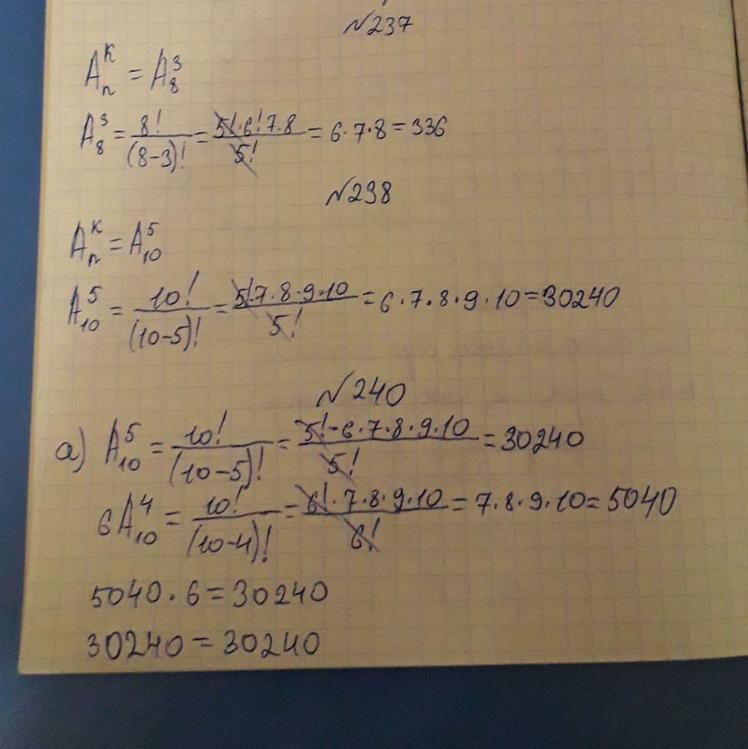 №237
Aₙᴷ = A₈³
A₈³ = 8!/(8-3)! = 5!·6!7·8/5! = 6·7·8 = 336
№238
Aₙᴷ = A₁₀⁵
A₁₀⁵ = 10!/(10-5)! = 5!·7·8·9·10/5! = 6·7·8·9·10 = 30240
№240
а) A₁₀⁵ = 10!/(10-5)! = 5!-6·7·8·9·10/5! = 30240
6A₁₀⁴ = 10!/(10-4)! = 6!·7·8·9·10/6! = 7·8·9·10 = 5040
5040·6 = 30240
30240 = 30240